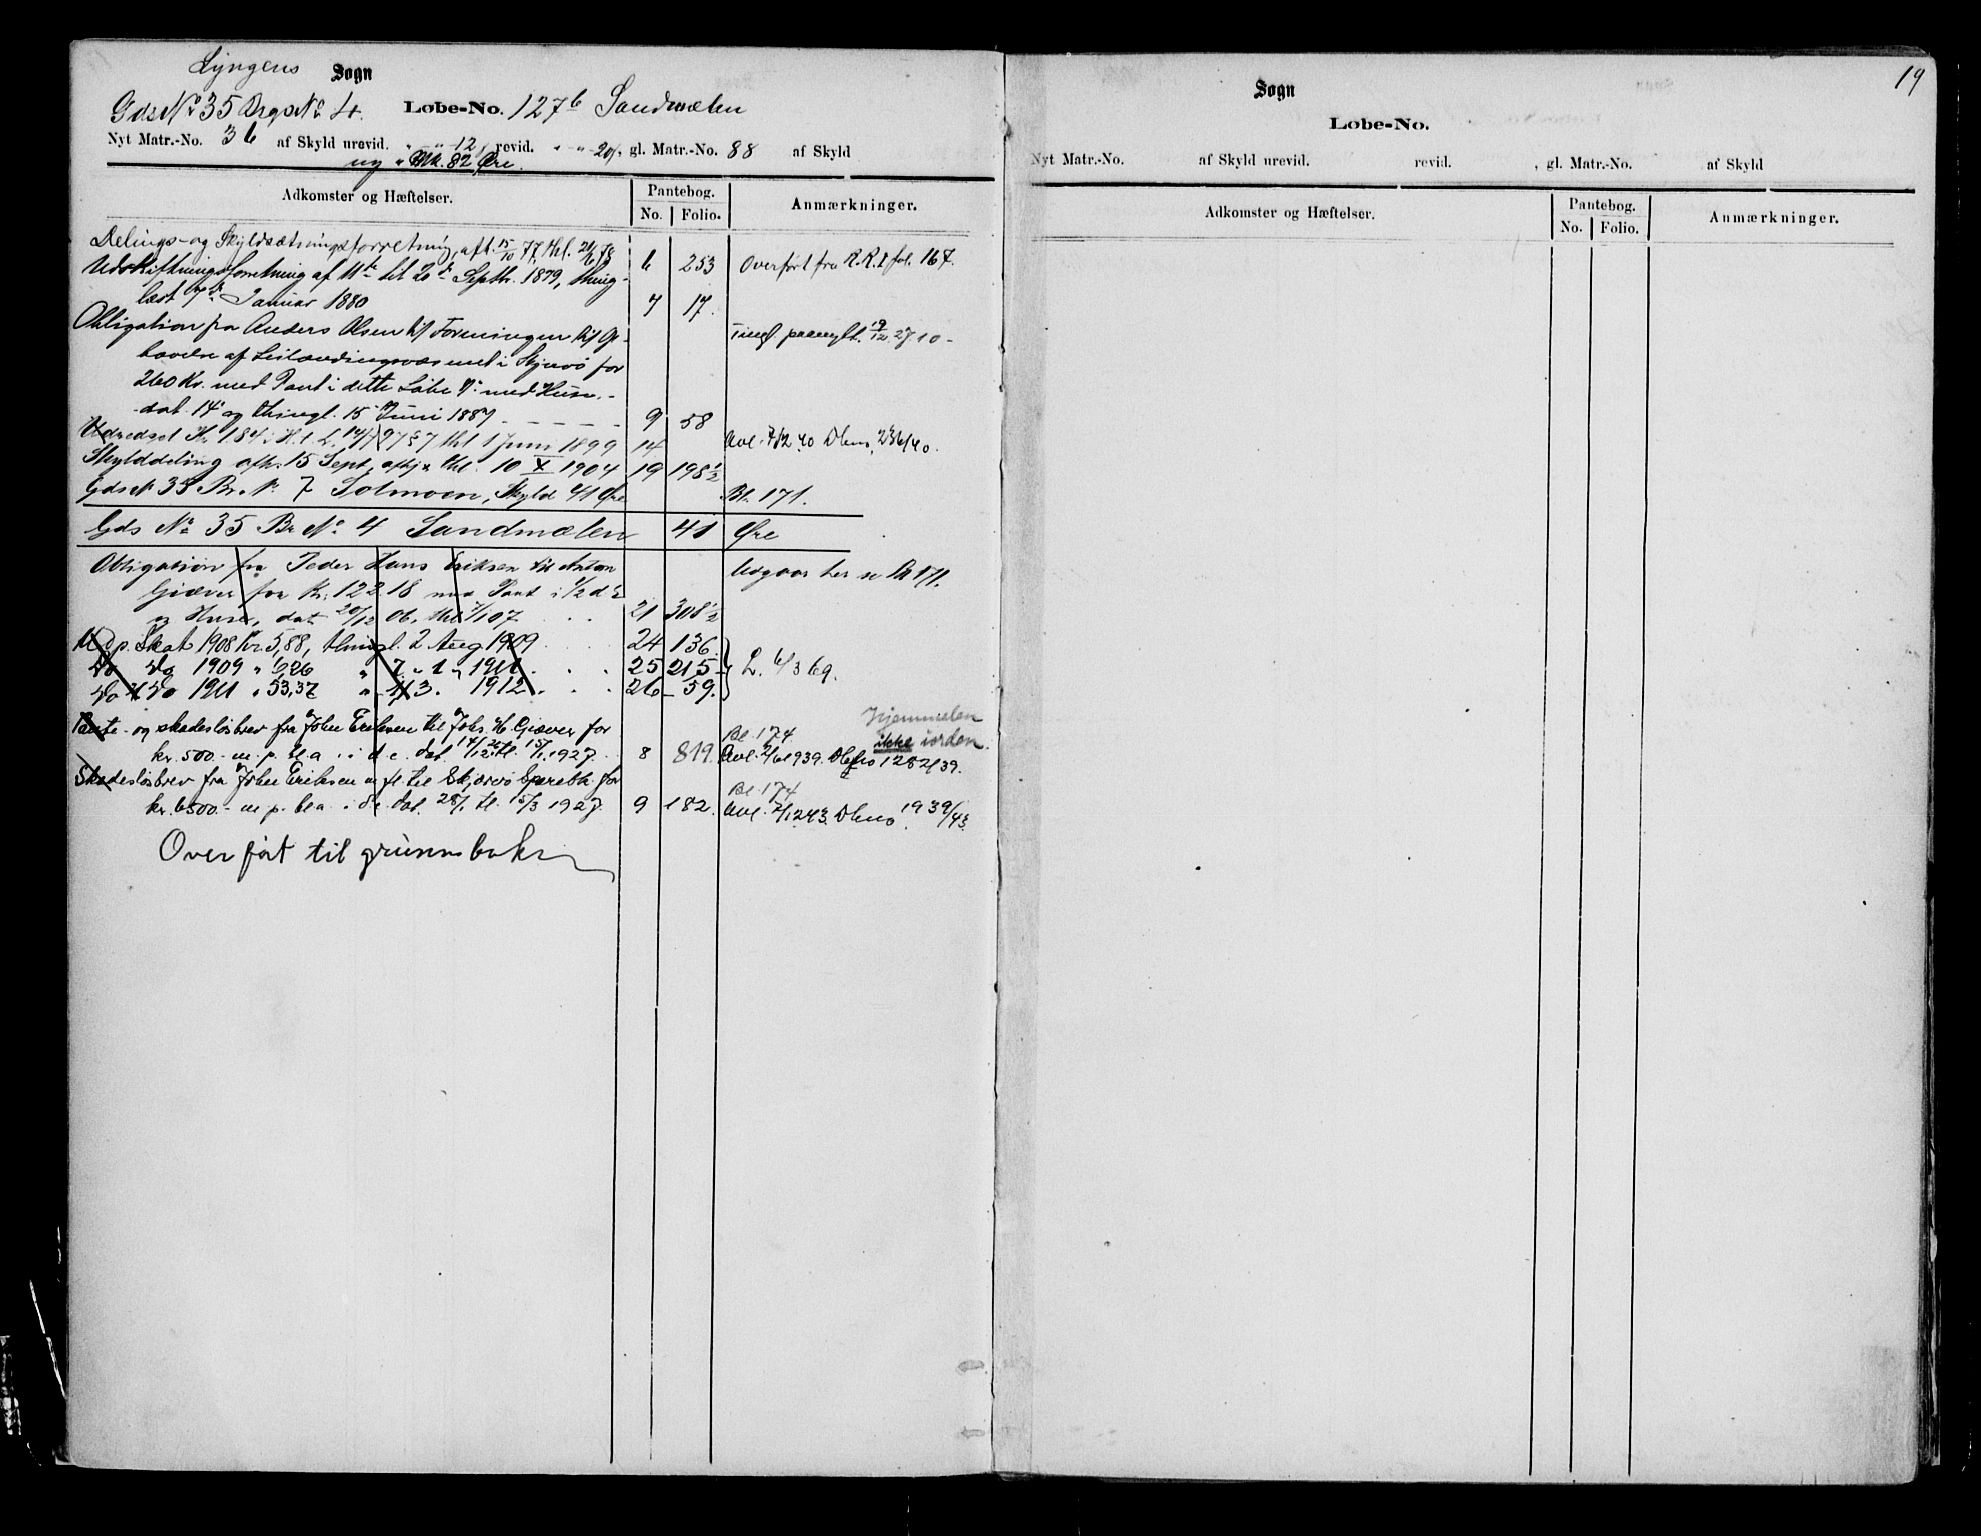 Lyngens Sogn
Gds No 35 Brgs No 4. Løbe-No. 127b Sandmælen
Nyt Matr.-No. 36 af Skyld urevid. " - " - 12 revid. " - " - 20 , gl. Matr.-No. 88 af Skyld
ny " Mk. 82 Øre.
Adkomster og Hæftelser. Pantebog. Anmærkninger.
No. Folio.
Delings- og Skyldsætningsforretning, afh. 15/10 77, thl. 78 6 253 Overført fra R.R.I fol. 167.
Udskiftningsforretning af 11te til 20de Septbr. 1879, thing-
læst 7de Januar 1880 7 17.
Obligation fra Anders Olsen til Foreningen til Op- Tingl paanylt. 19/12 27
hævelse af Leilændingsvæsenet i Skjervø for
260 Kr. med Pant i dette Løbe No med Huse. -
dat. 14 og thingl. 15 Juni 1887 - - - - - 9 58
Udredsel Kr 184 i H. t. L. 14/7 97 § 7 thl 1 Juni 1899 14 Avl. 7/12 40 Dbno. 236/40.
Skylddeling afh. 15 Sept, thl. 10 X 1904 19 198 1/2
Gds No 35 Br. No. 7 Solmoen, Skyld 41 Øre Bl. 171.
Gds No 35 Br No 4 Sandmælen 41 Øre
Obligation fra Peder Hans Eriksen til Anton Udgaar her se Bl 171.
Giæver for Kr. 122.18 med Pant i 1/2 d E
og Huse, dat 20/12 06, thl 7/1 07 . . . 21 308 1/2
Udp. Skat 1908 Kr. 5,88, thingl. 2 Aug 1909 24 136.
Do Do 1909 " 6,26 " 7 - 1 - 1911 . . . 25 215 L. 6/3 69.
Do Do 1911 " 53,37 " 3. 1912 . . . 26 59.
Pante- og skadesløsbrev fra John Eriksen til Johs. H. Giæver for Bl. 174 Hjemmelen
kr. 500.- m. p. bl a. i d e. dat. 14/12 26 tl. 15/1 1927. 8 819. Avl. 2/6 1939. Dbno 1282/39. ikke iorden.
Skadesløsbrev fra John Eriksen m fl. til Skjærvø Sparebk. for Bl. 174
kr. 6500.- m. p. bl a. i d e. dat. 28/1 tl. 15/3 1927. 9 182. Avl. 2/12 43. Dbno 1939/43.
Overført til grunnboken
19
Sogn
Løbe-No.
Nyt Matr.-No. af Skyld urevid. revid. , gl. Matr.-No. af Skyld
Adkomster og Hæftelser. Pantebog. Anmærkninger.
No. Folio.